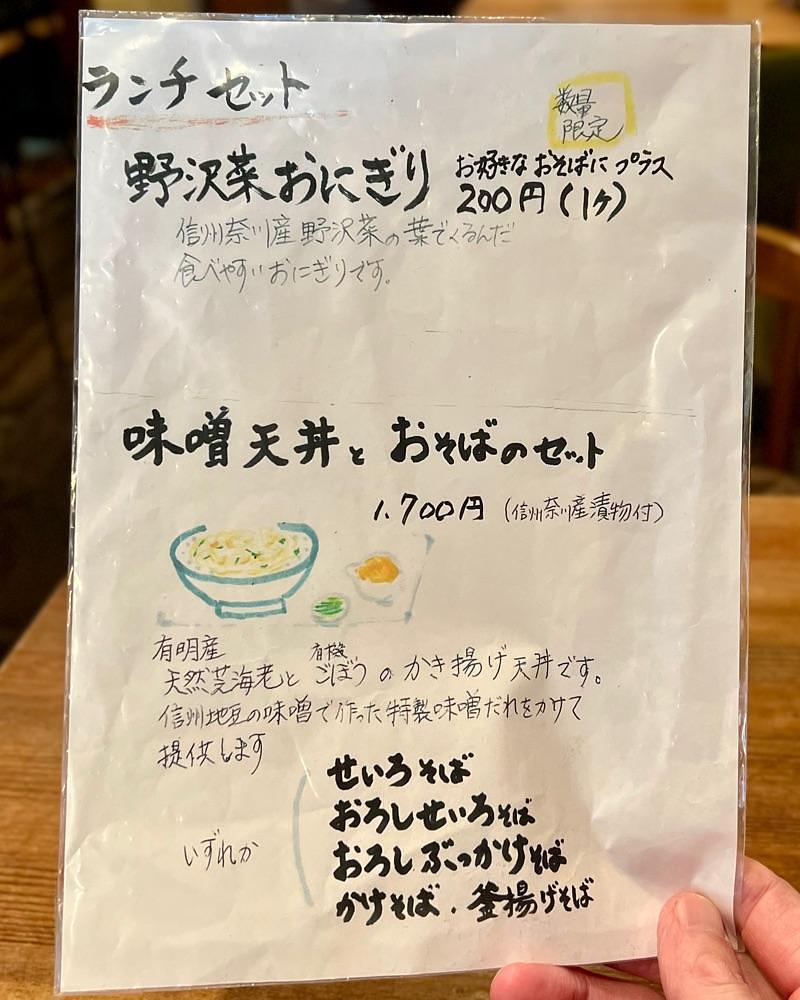 ランチセット
数量
限定
野沢菜おにぎり
お好きなおそばにプラス
200円(1ケ)
信州奈川産野沢菜の葉でくるんだ
食べやすいおにぎりです。
味噌天丼とおそばのセット
1.700円(信州奈川産漬物付)
有明産
有機
天然芝海老とごぼうのかき揚げ天丼です。
信州地豆の味噌で作った特製味噌だれをかけて
提供します
いずれか
せいろそば
おろしせいろそば
おろしぶっかけそば
かけそば・釜揚げそば